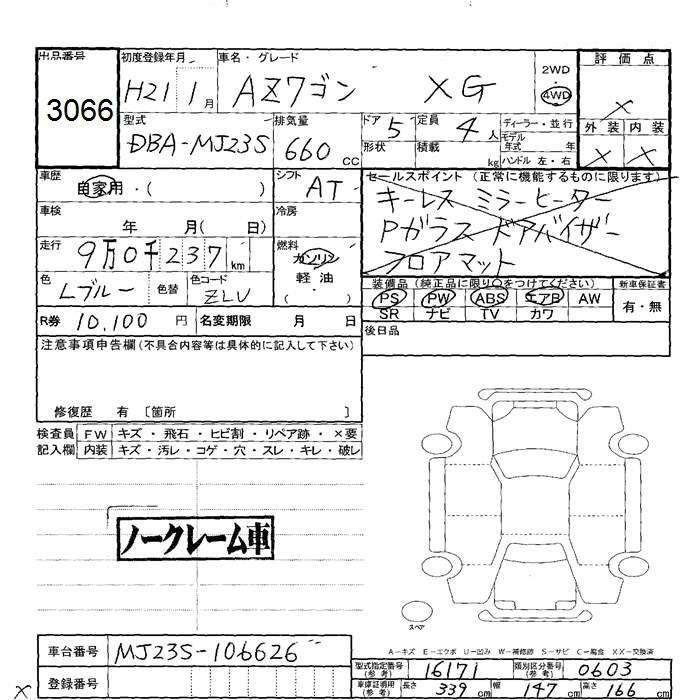 出品番号 初度登録年月 車名・グレード 2WD 評価点
3066 H21 1月 AZワゴン XG 4WD ×
型式 排気量 ドア 5 定員 4人 ディーラー・並行 外装 内装
DBA-MJ23S 660cc 形状 積載 kg モデル年式 年 × ×
ハンドル 左・右
車歴 自家用・( ) シフト AT セールスポイント(正常に機能するものに限ります)
車検 年 月( 日) 冷房 キーレス ミラーヒーター
走行 9万0千237km 燃料 ガソリン Pガラス ドアバイザー
軽油 フロアマット
色 Lブルー 色替 色コード ZLV ( ・ ) 装備品(純正品に限り○をつけてください) 新車保証書
PS PW ABS エアB AW 有・無
R券 10,100円 名変期限 月 日 SR ナビ TV カワ
注意事項申告欄(不具合内容等は具体的に記入して下さい) 後日品
修復歴 有 〔箇所 〕
検査員 FW キズ・飛石・ヒビ割・リペア跡・×要
記入欄 内装 キズ・汚レ・コゲ・穴・スレ・キレ・破レ
ノークレーム車
スペア
A-キズ E-エクボ U-凹み W-補修跡 S-サビ C-腐食 XX-交換済
車台番号 MJ23S-106626 型式指定番号(参考) 16171 類別区分番号(参考) 0603
登録番号 車庫証明用(参考) 長さ 339cm 幅 147cm 高さ 166cm
×